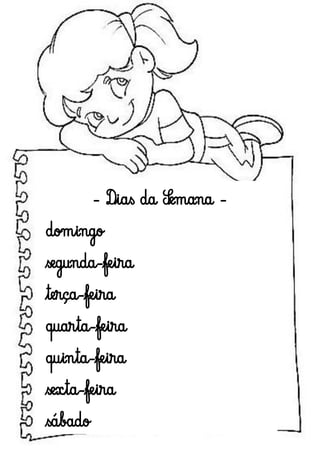 - Dias da Semana -
domingo
segunda-feira
terça-feira
quarta-feira
quinta-feira
sexta-feira
sábado